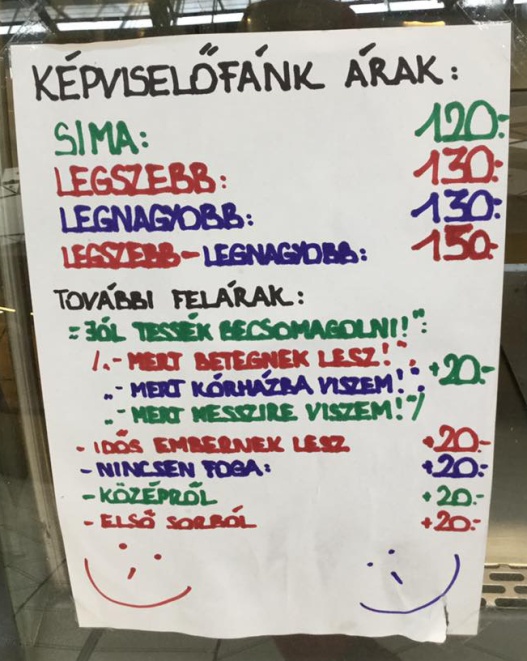 KÉPVISELŐFÁNK ÁRAK:
SIMA: 120.-
LEGSZEBB: 130.-
LEGNAGYOBB: 130.-
LEGSZEBB-LEGNAGYOBB: 150.-
TOVÁBBI FELÁRAK:
- "JÓL TESSÉK BECSOMAGOLNI!":
/.- MERT BETEGNEK LESZ!":
"- MERT KÓRHÁZBA VISZEM!": +20.-
"- MERT MESSZIRE VISZEM!"/
- IDŐS EMBERNEK LESZ +20.-
- NINCSEN FOGA: +20.-
- KÖZÉPRŐL +20.-
- ELSŐ SORBÓL +20.-